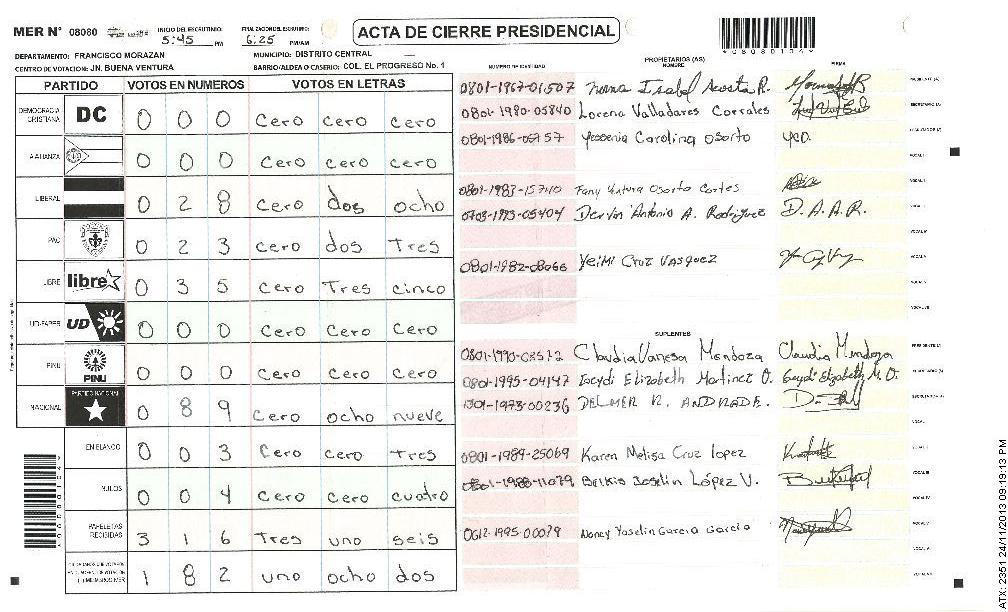 MER N° 08080
INICIO DEL ESCRUTINIO: 5:45 PM
FINALIZACION DEL ESCRUTINIO: 6:25 PM/AM
ACTA DE CIERRE PRESIDENCIAL
DEPARTAMENTO: FRANCISCO MORAZAN
MUNICIPIO: DISTRITO CENTRAL
CENTRO DE VOTACION: JN. BUENA VENTURA
BARRIO/ALDEA O CASERIO: COL. EL PROGRESO No. 1
PARTIDO VOTOS EN NUMEROS VOTOS EN LETRAS
DEMOCRACIA CRISTIANA DC 0 0 0 cero cero cero
ALIANZA 0 0 0 cero cero cero
LIBERAL 0 2 8 cero dos ocho
PAC 0 2 3 cero dos Tres
LIBRE libre 0 3 5 cero Tres cinco
UD-FAPER UD 0 0 0 cero cero cero
PINU PINU 0 0 0 cero cero cero
NACIONAL PARTIDO NACIONAL 0 8 9 cero ocho nueve
EN BLANCO 0 0 3 cero cero Tres
NULOS 0 0 4 cero cero cuatro
PAPELETAS RECIBIDAS 3 1 6 Tres uno seis
1 8 2 uno ocho dos
NUMERO DE IDENTIDAD PROPIETARIOS (AS) NOMBRE FIRMA
0801-1967-01507 Norma Isabel Acosta R.
0801-1980-05840 Lorena Valladares Corrales
0801-1986-06757 Yessenia Carolina Osorto YCO.
0801-1983-15740 Fany Ventura Osorto Cortes
0703-1993-05404 Dervin Antonio A. Rodriguez D. A. A. R.
0801-1982-08066 Yeimi Cruz Vasquez
SUPLENTES
0801-1990-03572 Claudia Vanesa Mendoza Claudia Mendoza
0801-1995-04147 Elizabeth Martinez O. Elizabeth M. O.
1301-1973-00236 DELMER R. ANDRADE.
0801-1989-25069 Karen Melisa Cruz lopez
0801-1988-11079 Belkis Joselin López V.
0612-1995-00079 Nancy Yoselin Garcia Garcia
ATX: 2351 24/11/2013 09:19:13 PM